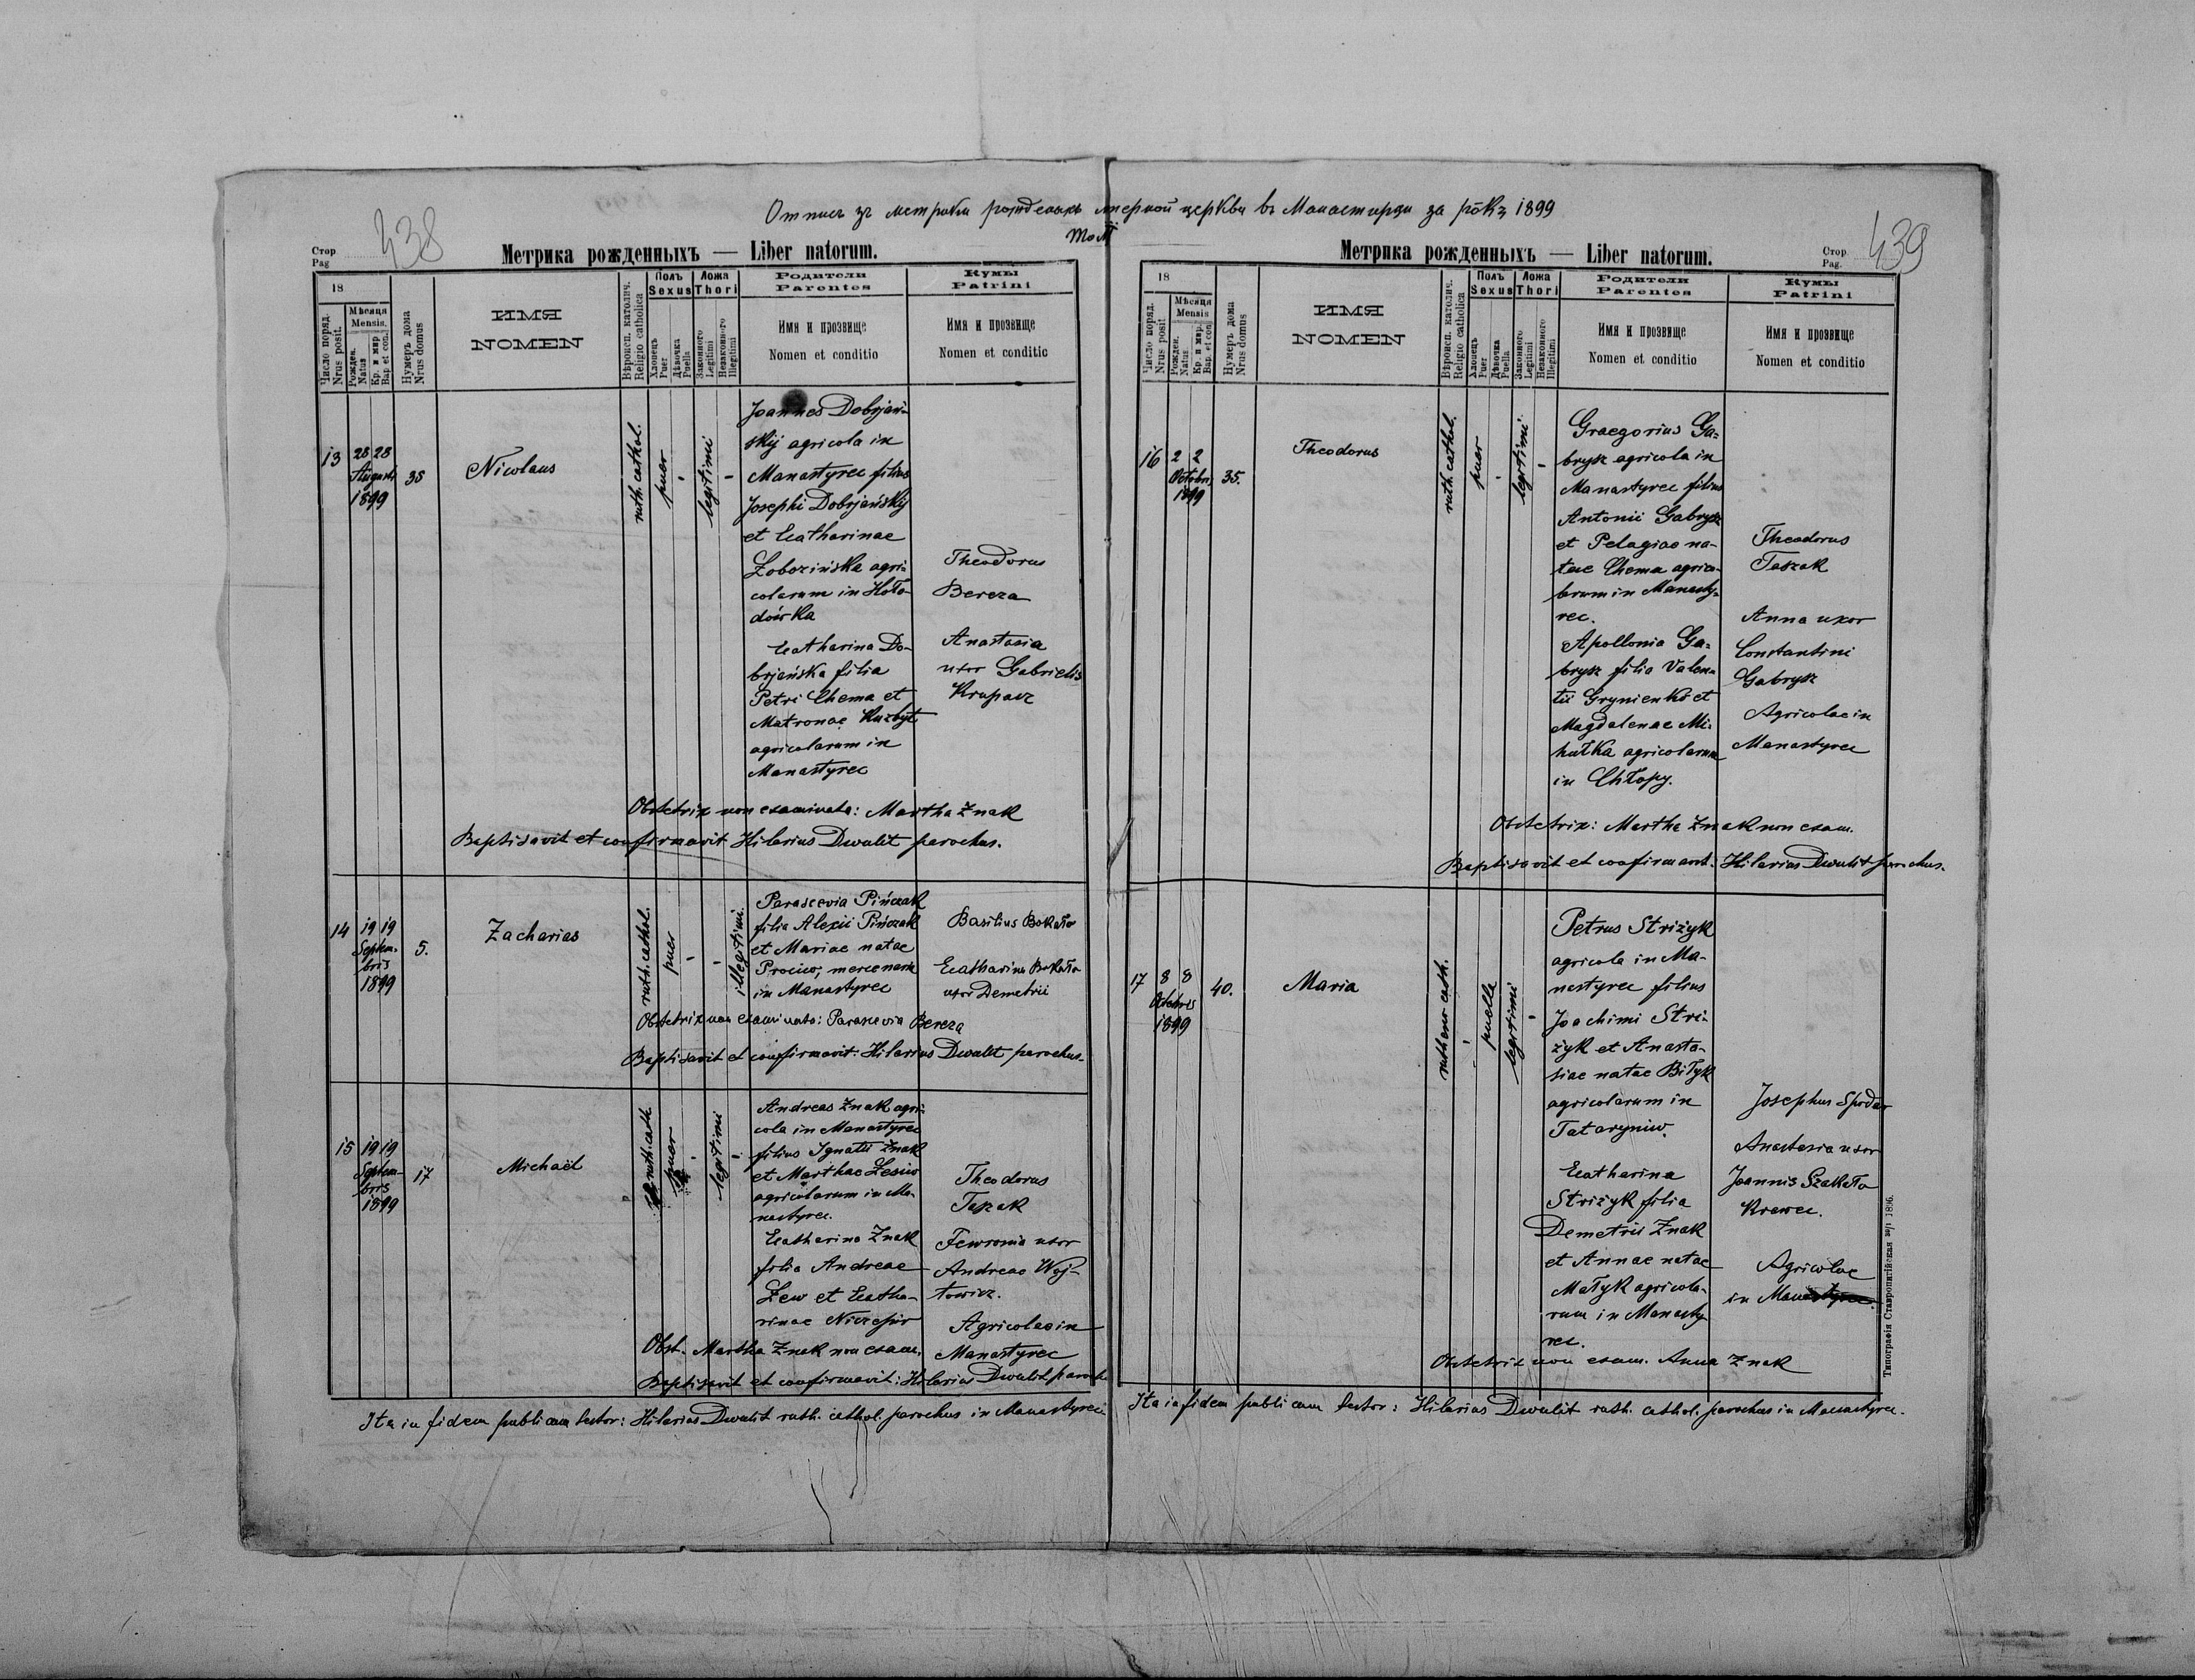 Отпись зъ метрики рожденыхъ церкви въ Манастирци за рôкъ 1899
438
Стор
Pag
Метрика рожденныхъ — Liber natorum.
18
Число поряд.
Nrus posit.
Мѣсяця
Mensis.
Рожден.
Natus
Кр. и мир
Bap. et con.
Нумеръ дома
Nrus domus
ИМЯ
NOMEN
Вѣроисп. католич.
Religio catholica
Полъ
Sexus
Хлопецъ
Puer
Дѣвочка
Puella
Ложа
Thori
Законного
Legitimi
Незаконного
Illegitimi
Родители
Parentes
Имя и прозвище
Nomen et conditio
Кумы
Patrini
Имя и прозвище
Nomen et conditio
13
28 28
Augusti
1899
35
Nicolaus
ruth. cathol.
puer
-
legitimi
-
Joannes Dobrjań-
skij agricola in
Manastyrec filius
Josephi Dobrjańskij
et Catharinae
Łobozińska agri-
colarum in Hoło-
dówka
Catharina Do-
brjańska filia
Petri Chema et
Matronae Kuzbyt
agricolarum in
Manastyrec
Theodorus
Bereza
Anastasia
uxor Gabrielis
Krupacz
Obstetrix non examinata: Martha Znak
Baptisavit et confirmavit Hilarius Dwulit parochus.
14
19 19
Septem-
bris
1899
5.
Zacharias
ruth. cathol.
puer
-
-
illegitimi.
Parascevia Pińczak
filia Alexii Pińczak
et Mariae natae
Prociw, mercenaria
in Manastyrec
Basilius Bokało
Catharina Bokało
uxor Demetrii
Obstetrix non examinata: Parascevia Bereza
Baptisavit et confirmavit: Hilarius Dwulit parochus.
15
19 19
Septem-
bris
1899
17
Michaël
ruth. cath
puer
-
legitimi
-
Andreas Znak agri-
cola in Manastyrec
filius Ignatii Znak
et Marthae Lesiw
agricolarum in Ma-
nastyrec.
Catharina Znak
filia Andreae
Lew et Catha-
rinae Niczepir
Theodorus
Taszak
Fewronia uxor
Andreae Woj-
towicz.
Agricolae in
Manastyrec
Obst. Martha Znak non exam.
Baptisavit et confirmavit: Hilarius Dwulit paroch
Ita in fidem publicam testor: Hilarius Dwulit ruth. cathol. parochus in Manastyrec
439
Стор
Pag.
Метрика рожденныхъ — Liber natorum.
18
Число поряд.
Nrus posit
Мѣсяця
Mensis
Рожден.
Natus
Кр. и мир.
Bap. et con
Нумеръ дома
Nrus domus
ИМЯ
NOMEN
Вѣроисп. католич.
Religio catholica
Полъ
Sexus
Хлопецъ
Puer
Дѣвочка
Puella
Ложа
Thori
Законного
Legitimi
Незаконного
Illegitimi
Родители
Parentes
Имя и прозвище
Nomen et conditio
Кумы
Patrini
Имя и прозвище
Nomen et conditio
16
2 2
Octobris
1899
35.
Theodorus
ruth. cathol.
puer
-
legitimi.
-
Graegorius Ga-
brysz agricola in
Manastyrec filius
Antonii Gabrysz
et Pelagiae na-
tae Chema agrico-
larum in Manasty-
rec.
Apollonia Ga-
brysz filia Valen-
tii Grynienko et
Magdalenae Mi-
hułka agricolarum
in Chłopy.
Theodorus
Taszak
Anna uxor
Constantini
Gabrysz
Agricolae in
Manastyrec
Obstetrix: Martha Znak non exam.
Baptisavit et confirmavit: Hilarius Dwulit parochus.
17
8 8
Octobris
1899
40.
Maria
rutheno cath.
-
puella
legitimi
-
Petrus Striżyk
agricola in Ma-
nastyrec filius
Joachimi Stri-
żyk et Anasta-
siae natae Biłyk
agricolarum in
Tataryniw.
Catharina
Striżyk filia
Demetrii Znak
et Annae natae
Małyk agricola-
rum in Manasty
rec.
Josephus Spodar
Anastasia uxor
Joannis Szakała
Krewec.
Agricolae
in Manastyrec.
Obstetrix non exam. Anna Znak
Типографія Ставропигійская 1896.
Ita in fidem publicam testor: Hilarius Dwulit ruth. cathol. parochus in Manastyrec.